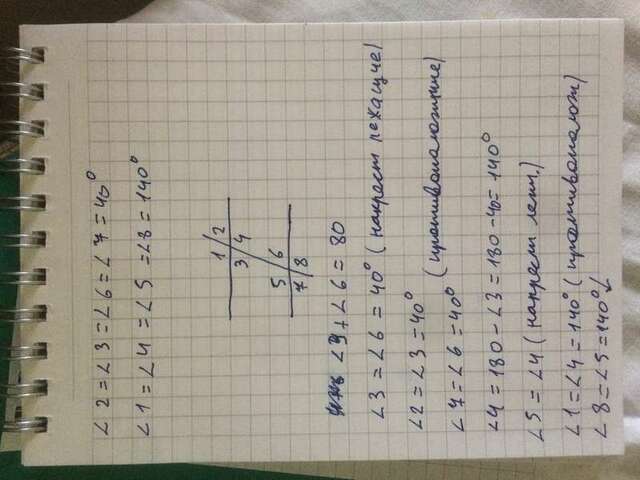 ∠2 = ∠3 = ∠6 = ∠7 = 40°
∠1 = ∠4 = ∠5 = ∠8 = 140°
1 2
3 4
5 6
7 8
∠6 = 80
∠3 = ∠6 = 40° (накрест лежащие)
∠2 = ∠3 = 40°
∠7 = ∠6 = 40° (противоположные)
∠4 = 180 - ∠3 = 180 - 40 = 140°
∠5 = ∠4 (накрест леж.)
∠1 = ∠4 = 140° (противополож)
∠8 = ∠5 = 140°